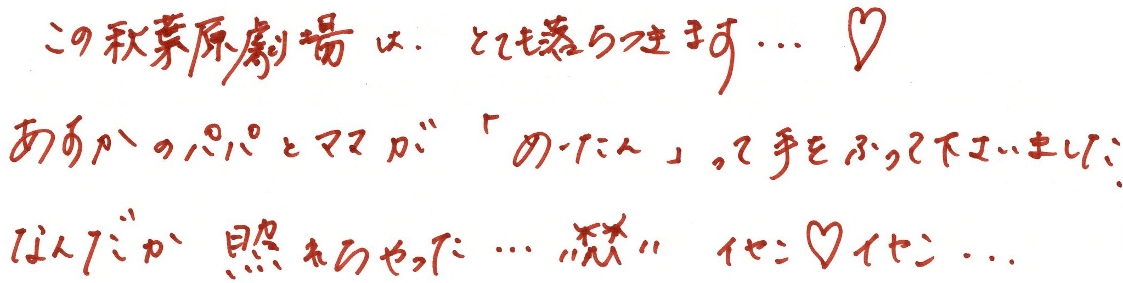 この秋葉原劇場は、とても落ちつきます… ♡
あすかのパパとママが「めーたん」って手をふって下さいました
なんだか照れちゃった… イヤン♡イヤン…